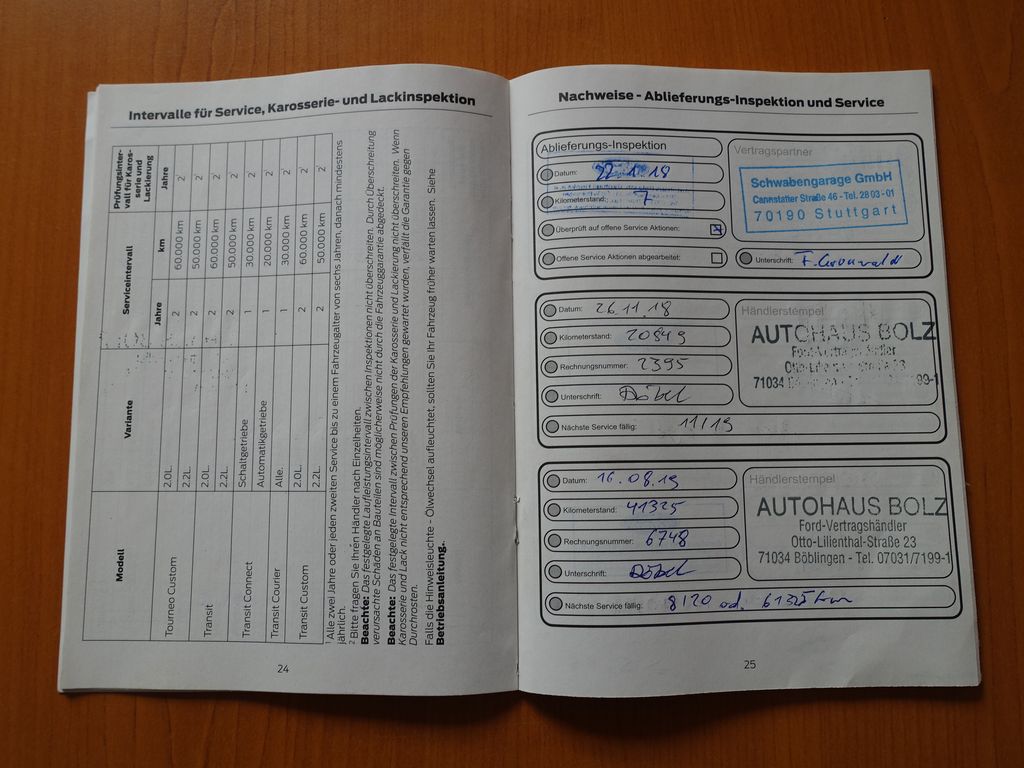 Intervalle für Service, Karosserie- und Lackinspektion
Modell
Variante
Serviceintervall
Prüfungsinter-
vall für Karos-
serie und
Lackierung
Jahre
km
Jahre
Tourneo Custom
2.0L.
2
60.000 km
2
2.2L.
2
50.000 km
2
Transit
2.0L.
2
60.000 km
2
2.2L.
2
50.000 km
2
Transit Connect
Schaltgetriebe
1
30.000 km
2
Automatikgetriebe
1
20.000 km
2
Transit Courier
Alle.
1
30.000 km
2
Transit Custom
2.0L.
2
60.000 km
2
2.2L.
2
50.000 km
2
¹ Alle zwei Jahre oder jeden zweiten Service bis zu einem Fahrzeugalter von sechs Jahren, danach mindestens
jährlich.
² Bitte fragen Sie Ihren Händler nach Einzelheiten.
Beachte: Das festgelegte Laufleistungsintervall zwischen Inspektionen nicht überschreiten. Durch Überschreitung
verursachte Schäden an Bauteilen sind möglicherweise nicht durch die Fahrzeuggarantie abgedeckt.
Beachte: Das festgelegte Intervall zwischen Prüfungen der Karosserie und Lackierung nicht überschreiten. Wenn
Karosserie und Lack nicht entsprechend unseren Empfehlungen gewartet wurden, verfällt die Garantie gegen
Durchrosten.
Falls die Hinweisleuchte - Ölwechsel aufleuchtet, sollten Sie Ihr Fahrzeug früher warten lassen. Siehe
Betriebsanleitung.
24
Nachweise - Ablieferungs-Inspektion und Service
Ablieferungs-Inspektion
Vertragspartner
Datum: 22.1.18
Kilometerstand: 7
Überprüft auf offene Service Aktionen:
Offene Service Aktionen abgearbeitet:
Schwabengarage GmbH
Cannstatter Straße 46 - Tel. 28 03 - 01
70190 Stuttgart
Unterschrift:
Datum: 26.11.18
Kilometerstand: 20849
Rechnungsnummer: 2395
Unterschrift: Döbel
Nächste Service fällig: 11/19
Händlerstempel
AUTOHAUS BOLZ
71034
Datum: 16.08.19
Kilometerstand: 41325
Rechnungsnummer: 6748
Unterschrift: Döbel
Nächste Service fällig: 8/20 od. 61325 km
Händlerstempel
AUTOHAUS BOLZ
Ford-Vertragshändler
Otto-Lilienthal-Straße 23
71034 Böblingen - Tel. 07031/7199-1
25